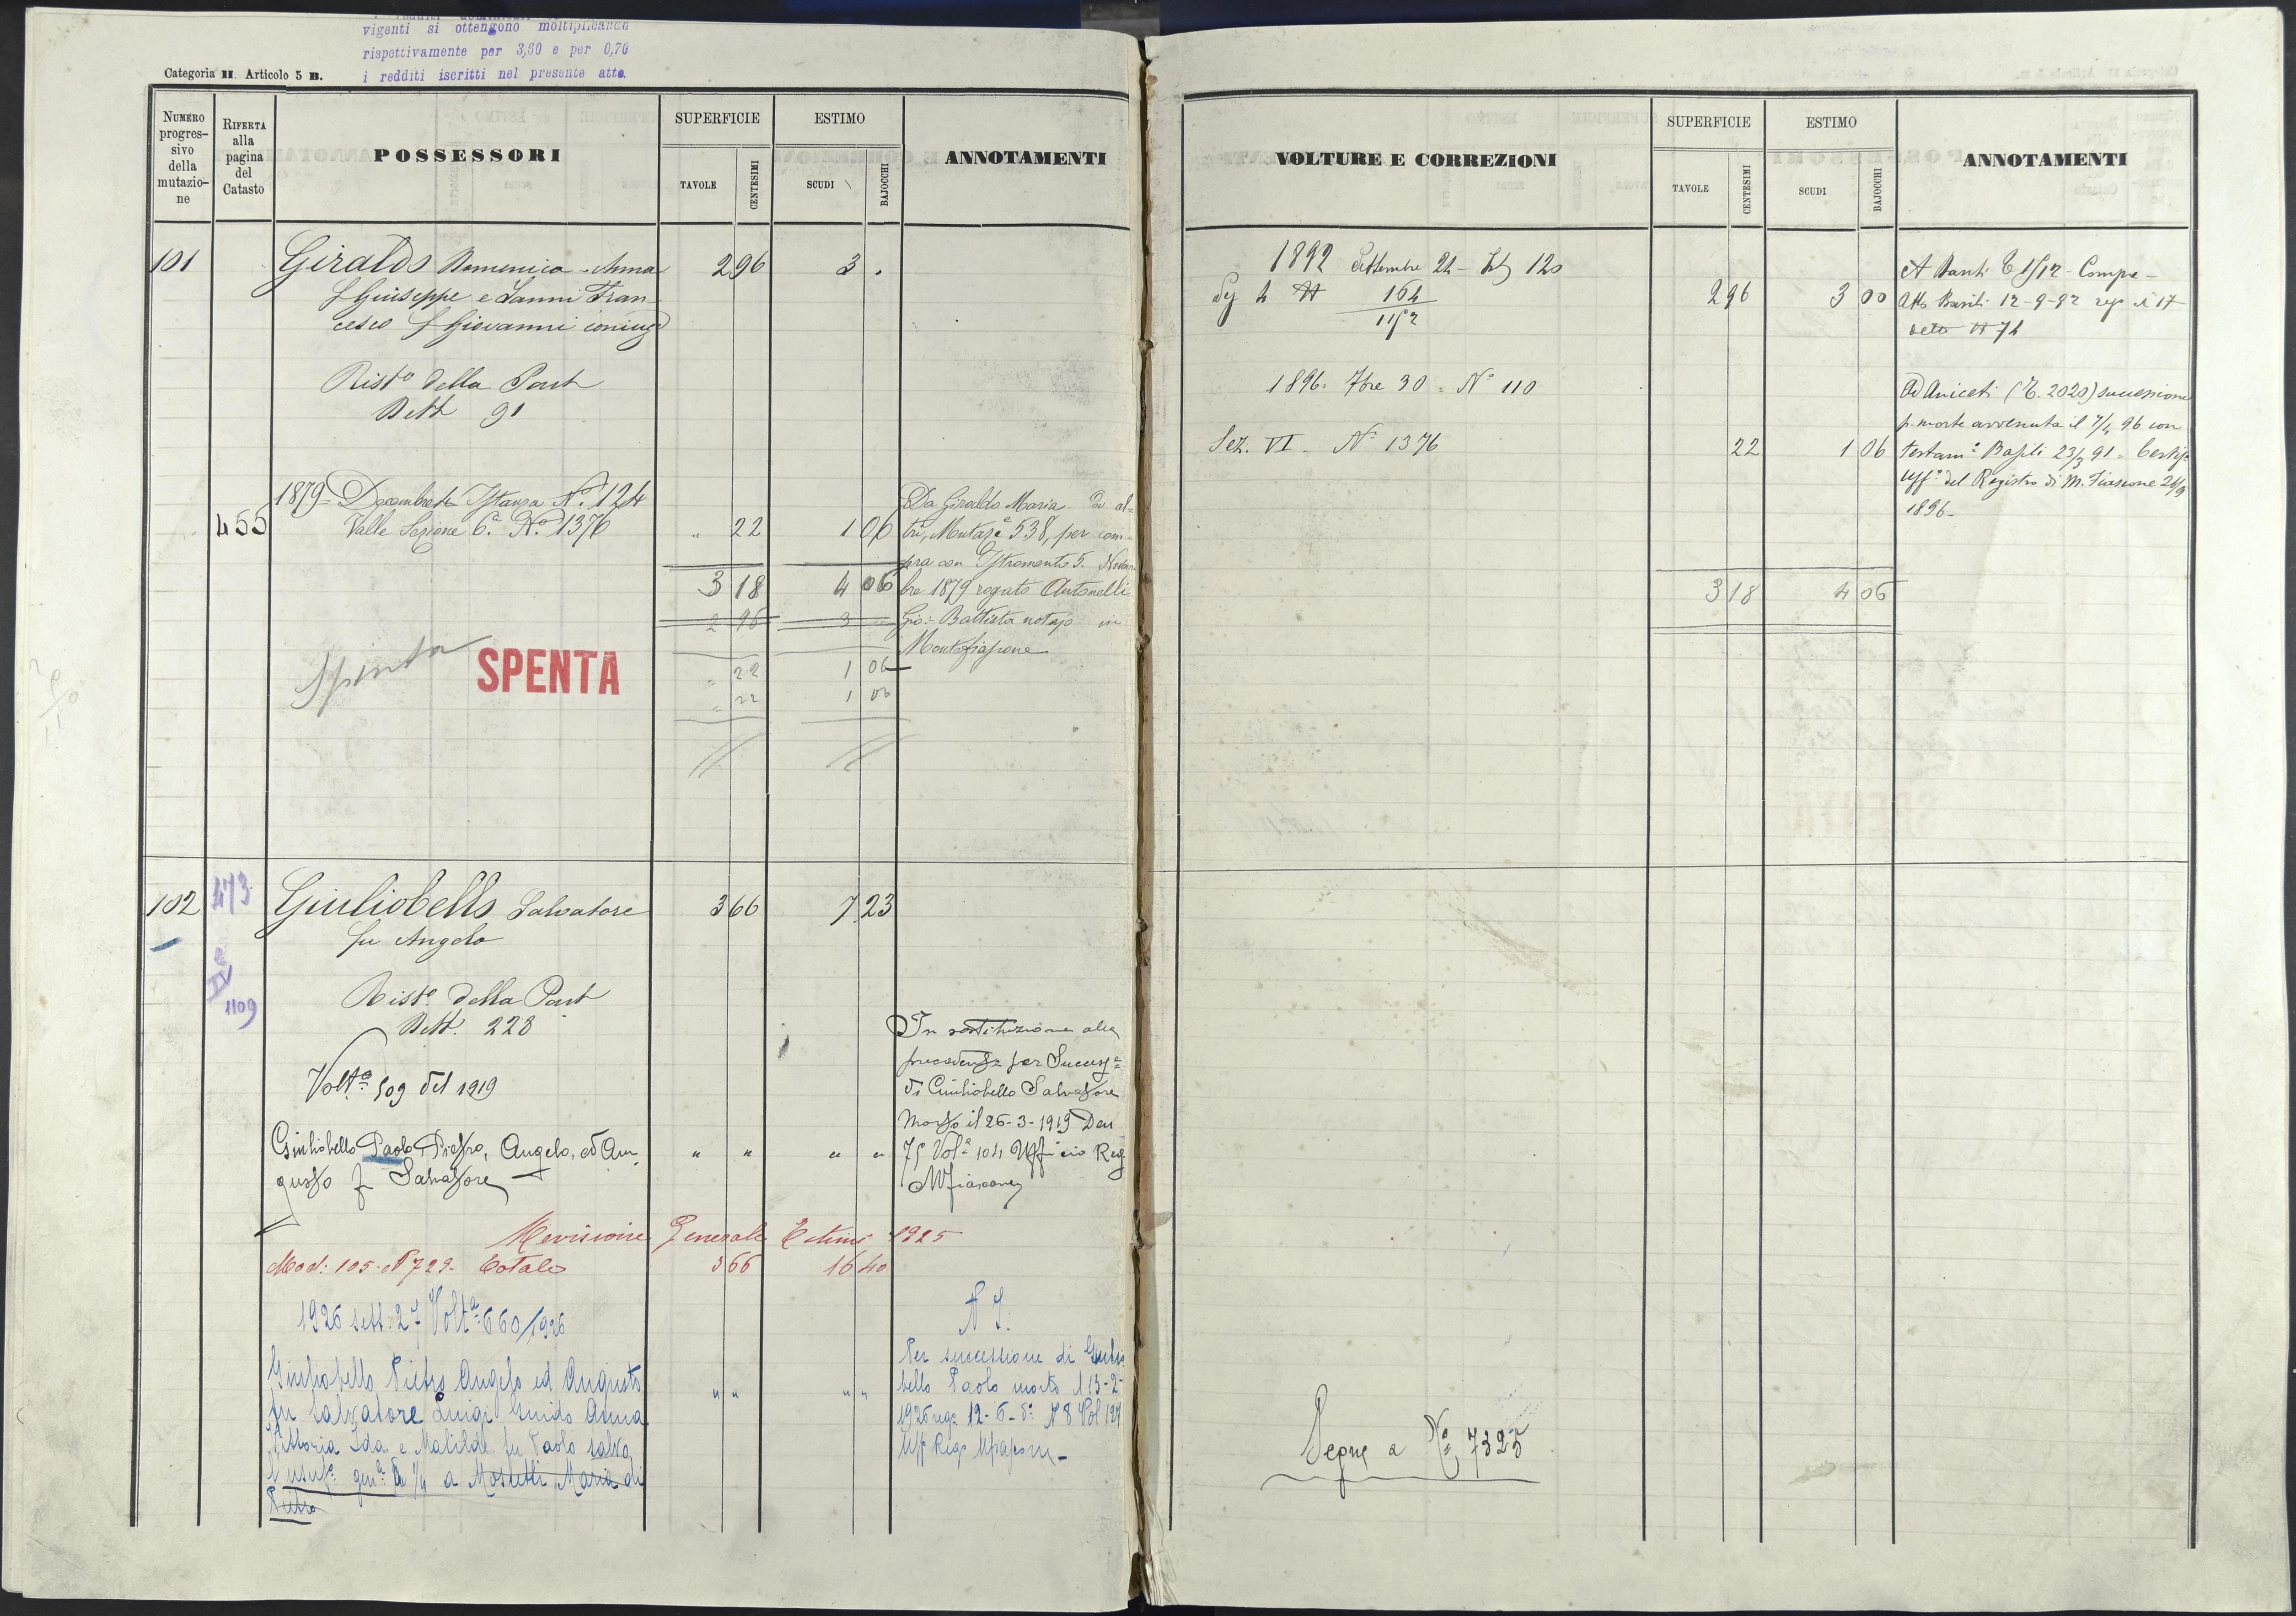 vigenti si ottengono moltiplicando
rispettivamente per 3,60 e per 0,70
i redditi iscritti nel presente atto.
Categoria II. Articolo 5 B.
NUMERO progres-sivo della mutazio-ne
RIFERTA alla pagina del Catasto
POSSESSORI
SUPERFICIE
TAVOLE
CENTESIMI
ESTIMO
SCUDI
BAJOCCHI
ANNOTAMENTI
101
Giraldo Domenica Anna 2 96 3 .
f Giuseppe e Sanni Fran-
cesco f Giovanni coniugi
Rist.o della Part
Dett 91
1879 Decembre Istanza N.o 124
455 Valle Sezione 6.a N.o 1376 " 22 1 06
Da Giraldo Maria ed al-
tri, Mutaz.e 538, per com-
pra con Istromento 5. Novem
bre 1879 rogato Antonelli
Gio: Battista notajo in
Montefiascone
3 18 4 06
2 96 3
" 22 1 06
" 22 1 06
Spenta
SPENTA
102 473
Giuliobello Salvatore 3 66 7 23
fu Angelo
IV
1109
Rist.o della Part
Dett. 228
Volt.a 509 del 1919
Giuliobello Paolo Pietro, Angelo, ed Au- " " " "
gusto f Salvatore
In sostituzione alla
precedente per Success.e
di Giuliobello Salvatore
morto il 26-3-1919 Den
75 Vol.e 104 Ufficio Reg
Mfiascone
Revisione Generale Estimi 1925
Mod: 105 N 729 Totale 3 66 16 40
1926 sett. 27 Volt.a 660/1926
Giuliobello Pietro Angelo ed Augusto " " " "
fu Salvatore Luigi Guido Anna
Vittoria Ida e Matilde fu Paolo salvo
l'usuf.o gen.e di 1/4 a Moscetti Maria di
Pietro
Per successione di Giulio
bello Paolo morto il 13-2-
1926 reg.o 12-6-d.o N 8 Vol 127
Uff Reg.o Mfiascone
VOLTURE E CORREZIONI
SUPERFICIE
TAVOLE
CENTESIMI
ESTIMO
SCUDI
BAJOCCHI
ANNOTAMENTI
1892 Settembre 24 120
164 2 96 3 00
1152
1896. 7bre 30 = N.o 110
Sez. VI - N.o 1376 22 1 06
3 18 4 06
Compra
Atto Basili 12-9-92 reg.o 17
detto N 74
Ad Aniceti (T. 2020) successione
p. morte avvenuta il 7/4 96 con
testam.o Basili 23/3 91 = Certif.o
Uff.o del Registro di M. Fiascone 24/9
1896-
Segue a N.o 7325